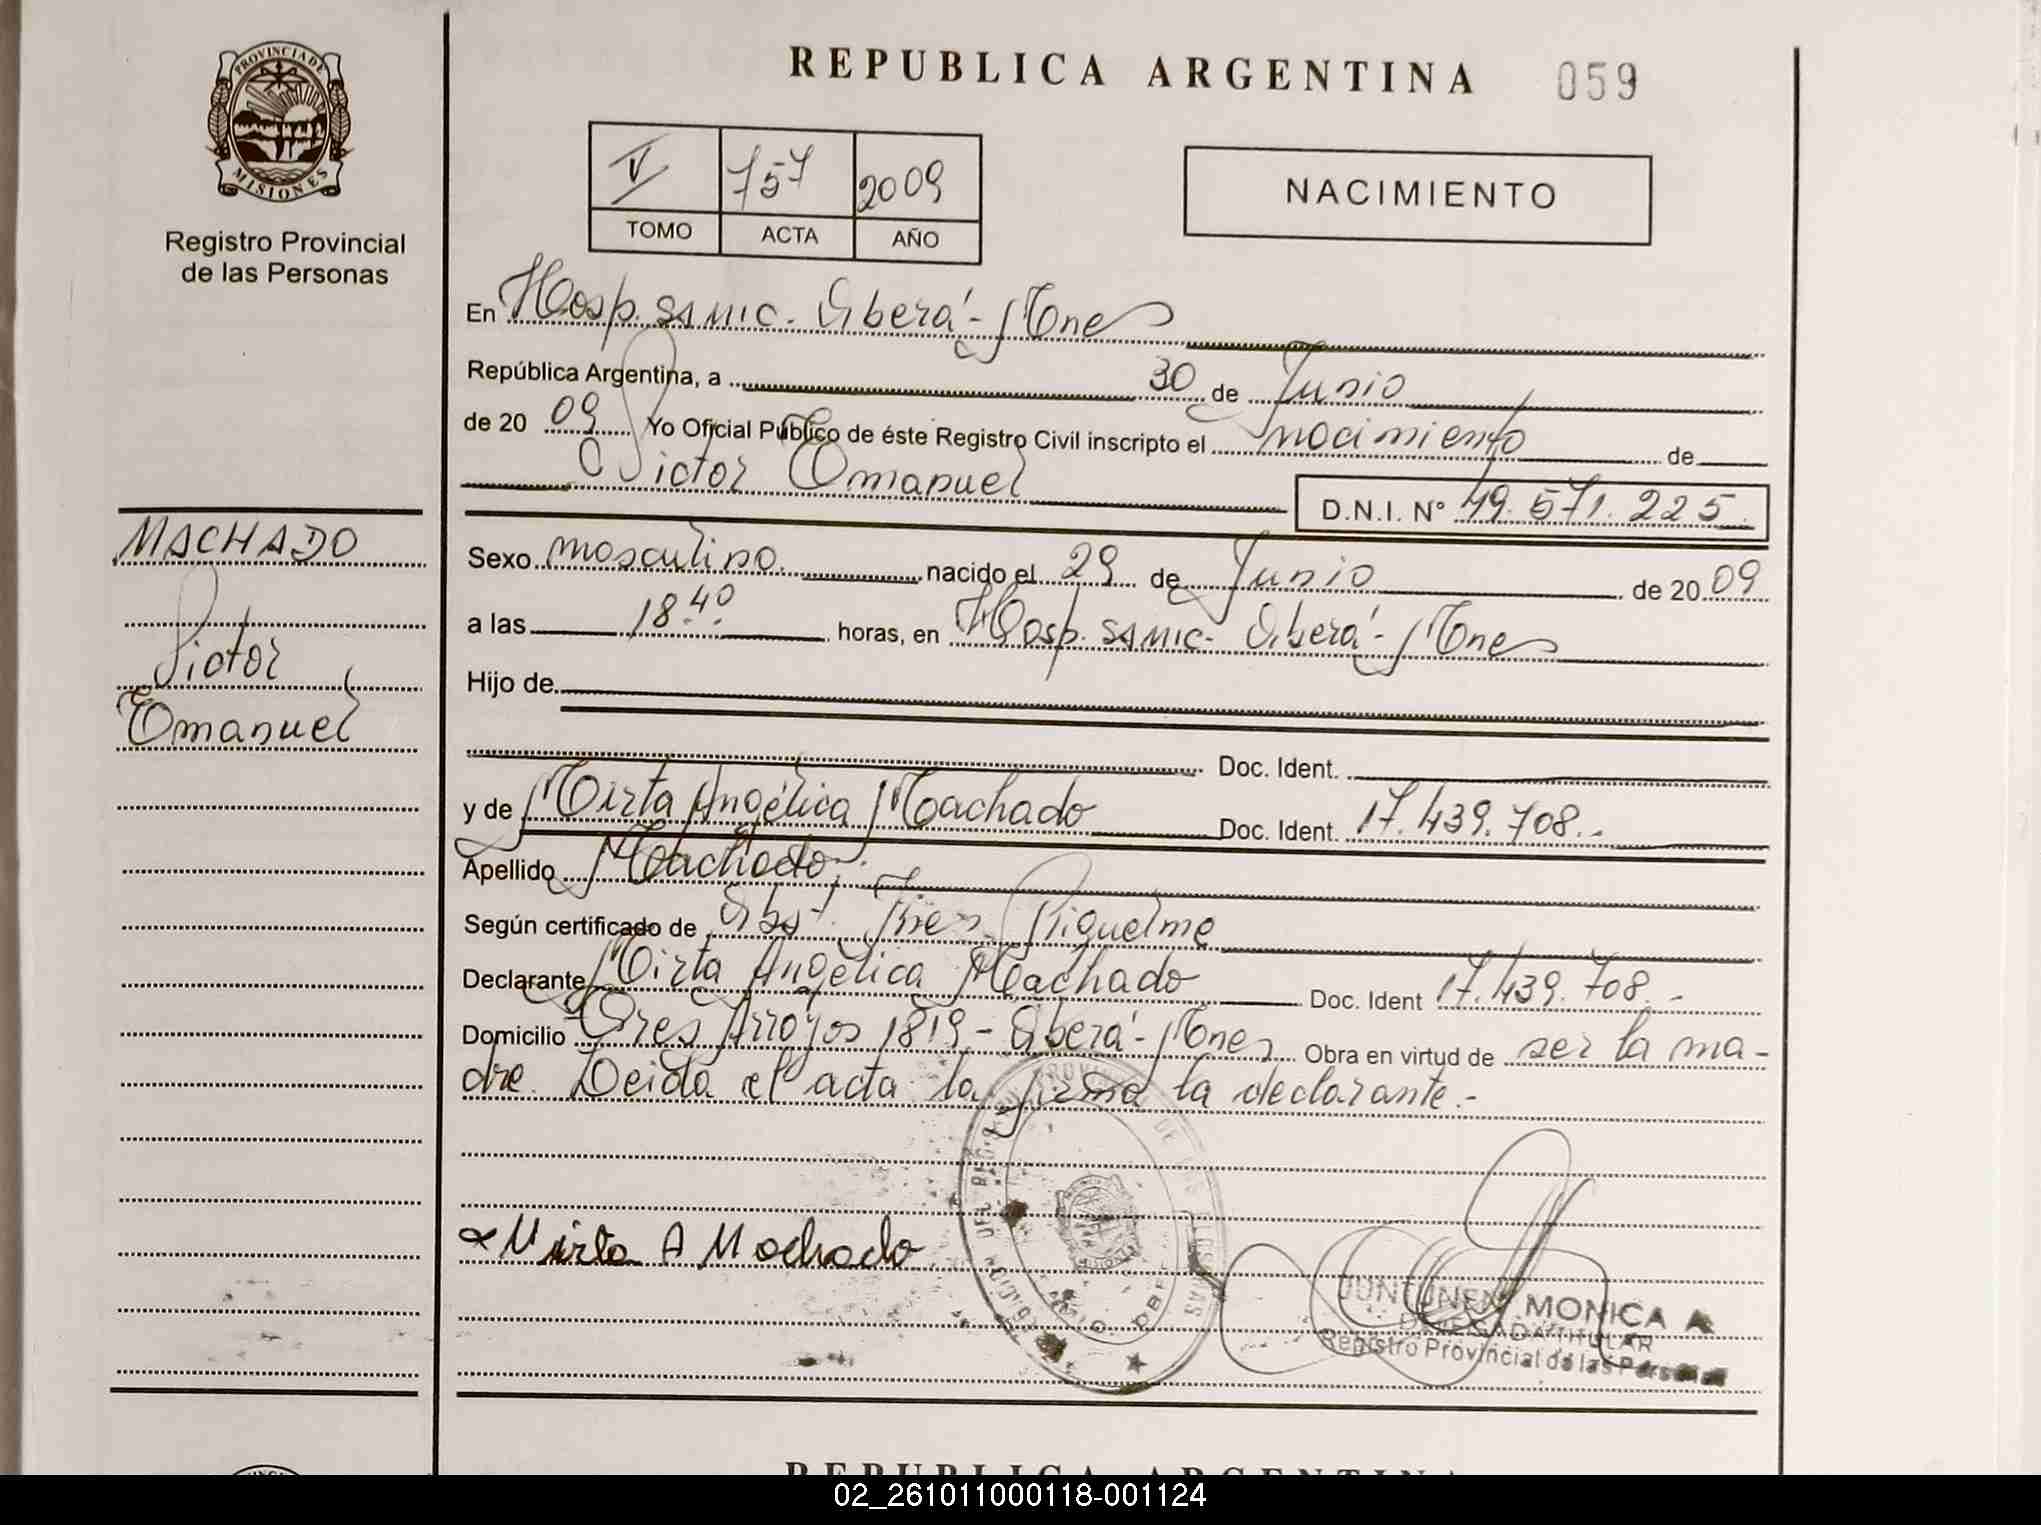 PROVINCIA DE
MISIONES
Registro Provincial
de las Personas
REPUBLICA ARGENTINA 059
V 757 2009
TOMO ACTA AÑO
NACIMIENTO
En Hosp. SAMIC. Oberá - Mnes
República Argentina, a 30 de Junio
de 20 09 Yo Oficial Público de éste Registro Civil inscripto el nacimiento de
Victor Emanuel
D.N.I. N° 49.571.225
MACHADO
Victor
Emanuel
Sexo masculino nacido el 29 de Junio de 20 09
a las 18.40 horas, en Hosp. SAMIC - Oberá - Mnes
Hijo de
Doc. Ident.
y de Mirta Angélica Machado Doc. Ident. 17.439.708.-
Apellido Machado
Según certificado de Obst. Riquelme
Declarante Mirta Angélica Machado Doc. Ident 17.439.708.-
Domicilio Tres Arroyos 1819 - Oberá - Mnes Obra en virtud de ser la ma-
dre. Leida el acta la firma la declarante.-
Mirta A Machado
MONICA A
DELEGADA TITULAR
Registro Provincial de las Personas
REPUBLICA ARGENTINA
02_261011000118-001124